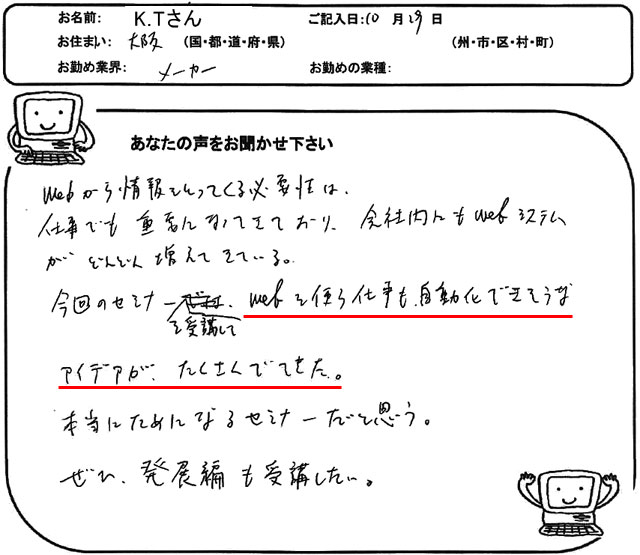 お名前: K.Tさん ご記入日:10月29日
お住まい: 大阪 (国・都・道・府・県) (州・市・区・村・町)
お勤め業界: メーカー お勤めの業種:
あなたの声をお聞かせ下さい
Webから情報をとってくる必要性は、
仕事でも重要になってきており、会社内にもwebシステム
がどんどん増えてきている。
今回のセミナーを受講して、webを使う仕事も自動化できそうな
アイデアが、たくさんでてきた。
本当にためになるセミナーだと思う。
ぜひ、発展編も受講したい。